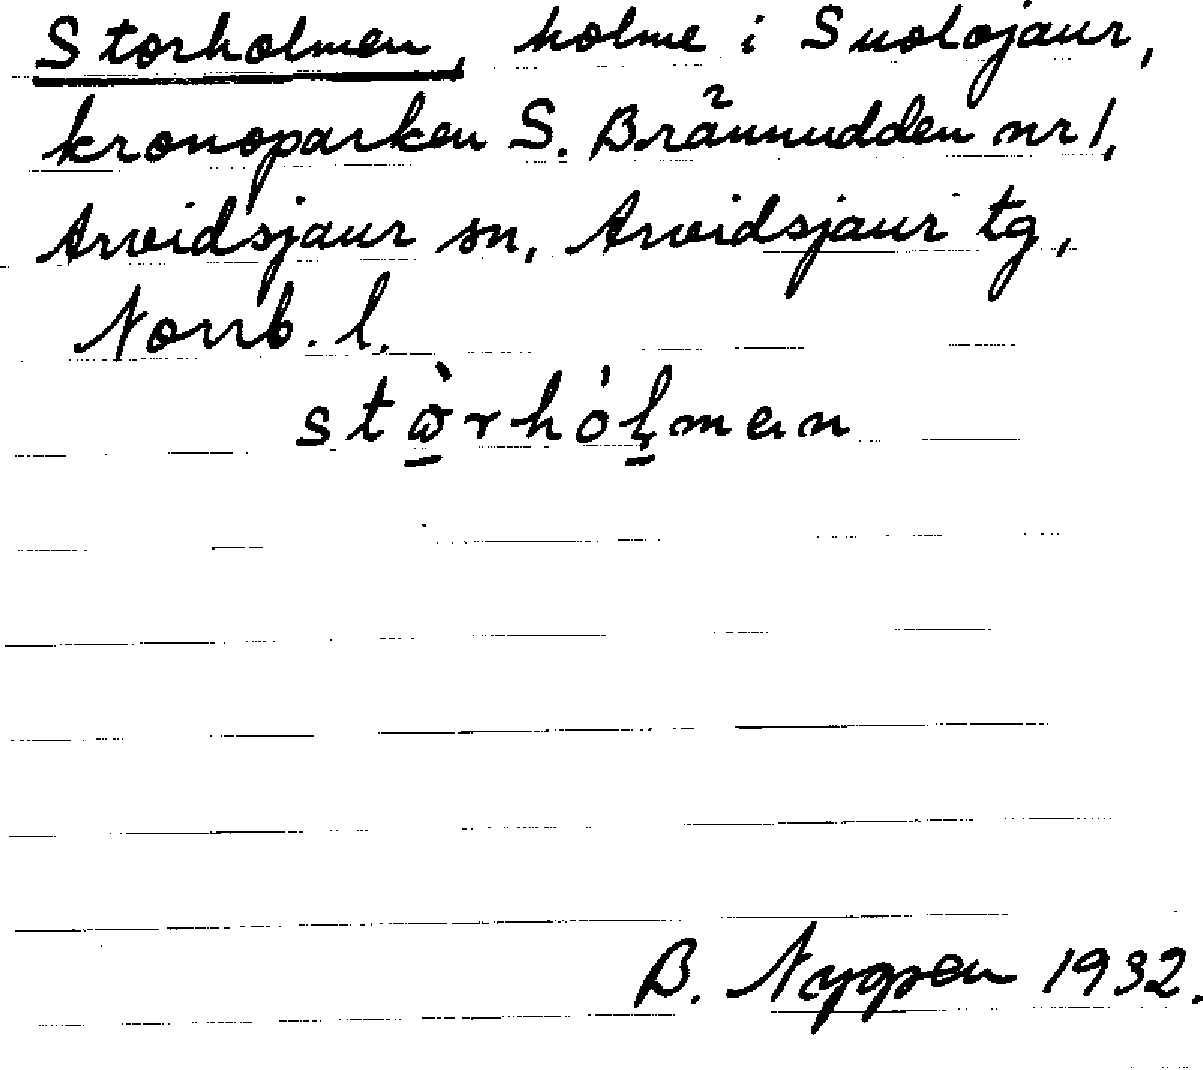 Storholmen, holme i Suolojaur,
kronoparken S. Brännudden nr 1,
Arvidsjaur sn, Arvidsjaur tg,
Norrb. l.
B. Nygren 1932.